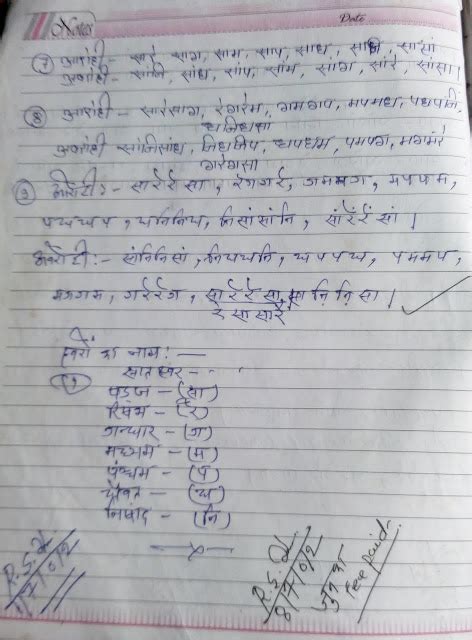 Notes Date
(7) आरोही - सारे, साग, साम, साप, साध, सानि, सासां
अवरोही - सांनि, सांध, सांप, सांम, सांग, सांरे, सांसा।
(8) आरोही - सारेसाग, रेगरेम, गमगप, मपमध, पधपनि,
धनिधसां
अवरोही - सांनिसांध, निधनिप, धपधम, पमपग, मगमरे
गरेगसा
(9) आरोही :- सारेरेसा, रेगगरे, गममग, मपपम,
पधधप, धनिनिध, निसांसांनि, सांरेंरेंसां।
अवरोही :- सांनिनिसां, निधधनि, धपपध, पममप,
मगगम, गरेरेग, सारेरेसा, सानि़नि़सा।
रेसासारे
स्वरों का नाम : —
सात स्वर - -
षड्ज - (सा)
रिषभ - (रे)
गन्धार - (ग)
मध्यम - (म)
पंचम - (प)
धैवत - (ध)
निषाद - (नि)
Fee paid -